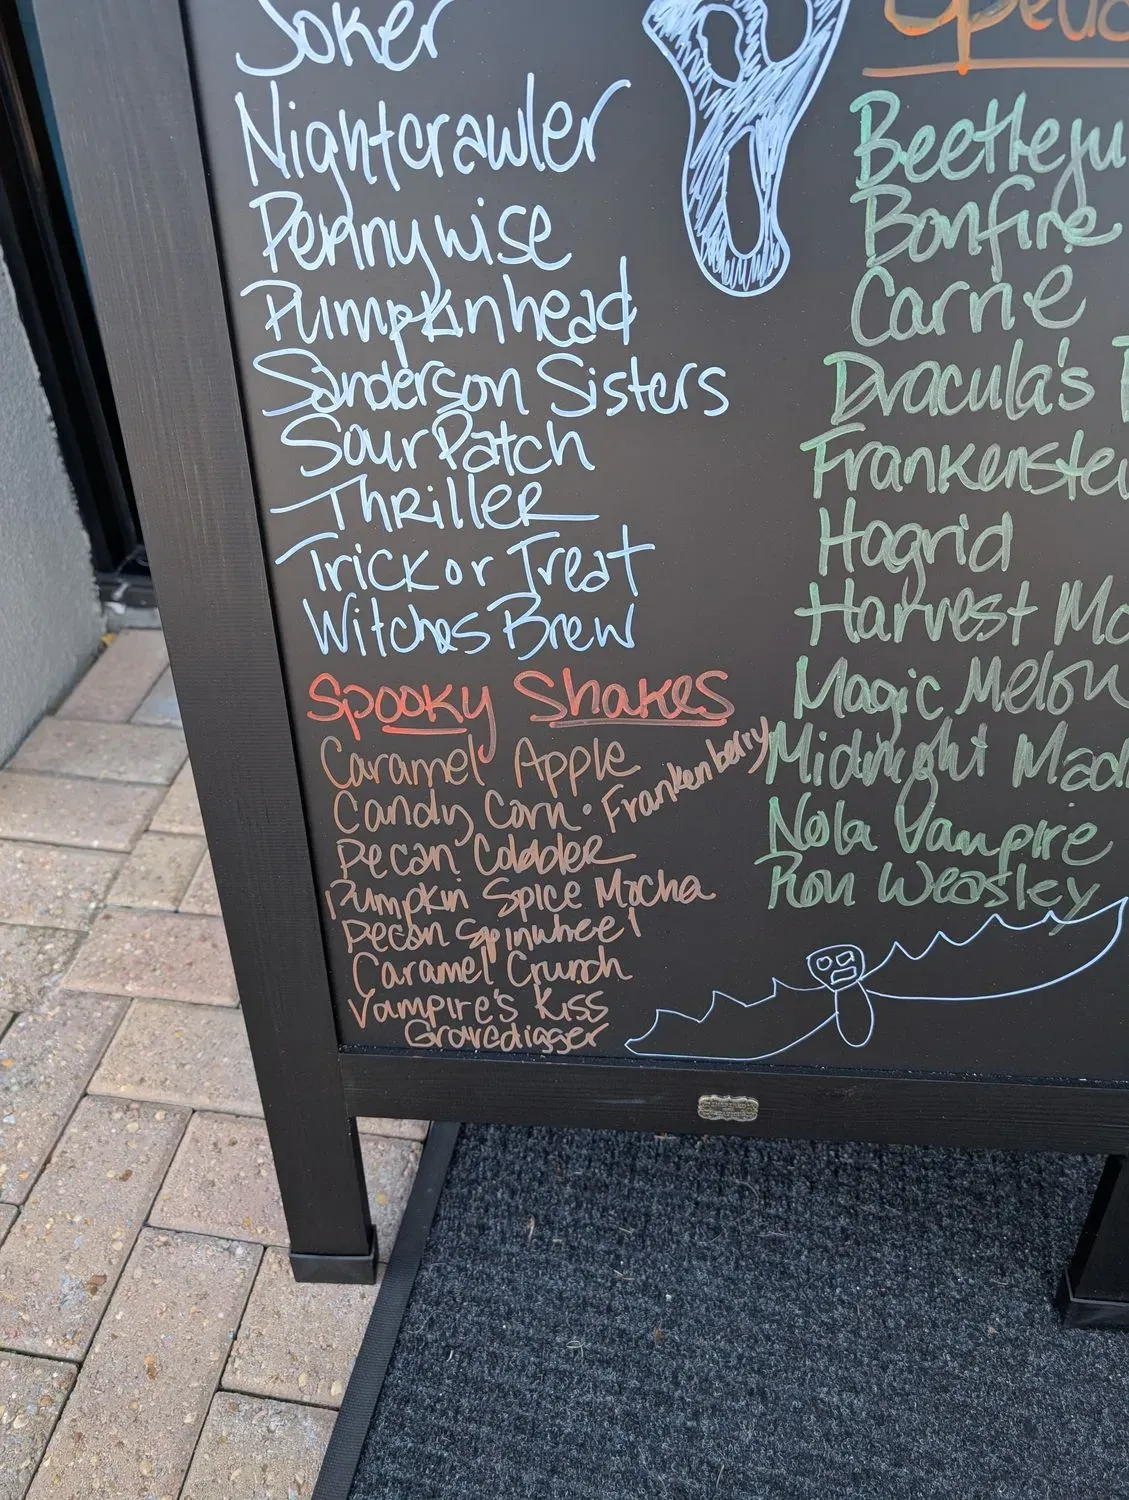 Joker
Nightcrawler
Pennywise
Pumpkinhead
Sanderson Sisters
Sour Patch
Thriller
Trick or Treat
Witches Brew
Spooky Shakes
Caramel Apple
Candy Corn · Frankenberry
Pecan Cobbler
Pumpkin Spice Mocha
Pecan Spinwheel
Caramel Crunch
Vampire's Kiss
Gravedigger
Beetleju
Bonfire
Carrie
Dracula's
Frankenste
Hagrid
Harvest Mo
Magic Melon
Midnight Mad
Nola Vampire
Ron Weasley